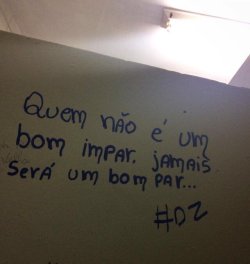 Quem não é um
bom impar. jamais
será um bom par...
#DZ